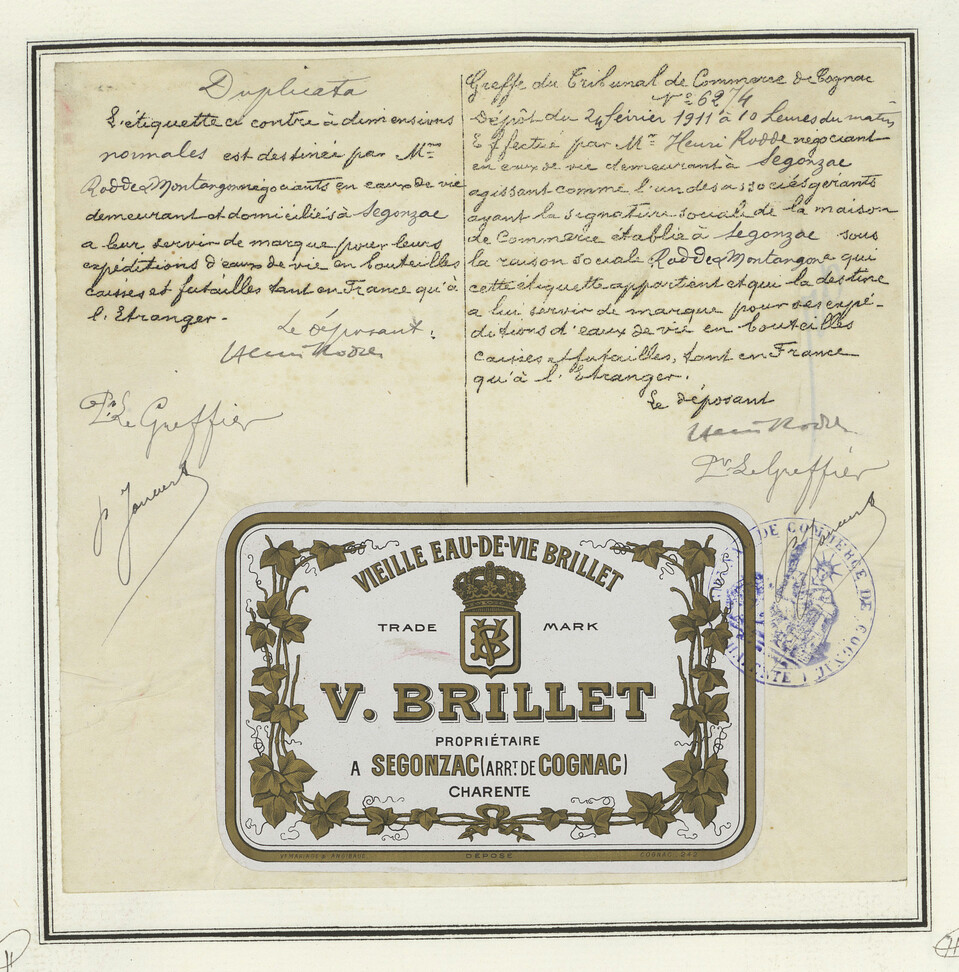 Duplicata
L'étiquette ci contre à dimensions
normales est destinée par Mrs
Rodde & Montangon négociants en eaux de vie
demeurant et domiciliés à Segonzac
a leur servir de marque pour leurs
expéditions d'eaux de vie en bouteilles
caisses et futailles tant en France qu'à
l'Etranger.
Le déposant:
Henri Rodde
Pr Le Greffier
Greffe du Tribunal de Commerce de Cognac
No 6274
Dépôt du 24 février 1911 à 10 heures du matin
Effectué par Mr Henri Rodde négociant
en eaux de vie demeurant à Segonzac
agissant comme l'un des associés gérants
ayant la signature sociale de la maison
de Commerce établie à Segonzac sous
la raison sociale Rodde & Montangon e qui
cette étiquette appartient et qui la destine
a lui servir de marque pour ses expé-
ditions d'eaux de vie en bouteilles
caisses et futailles, tant en France
qu'à l'Etranger.
Le déposant
Henri Rodde
Pr Le Greffier
VIEILLE EAU-DE-VIE BRILLET
TRADE MARK
VB
V. BRILLET
PROPRIÉTAIRE
A SEGONZAC (ARRT. DE COGNAC)
CHARENTE
DÉPOSÉ
COGNAC. 242
DE COMMERCE DE COGNAC